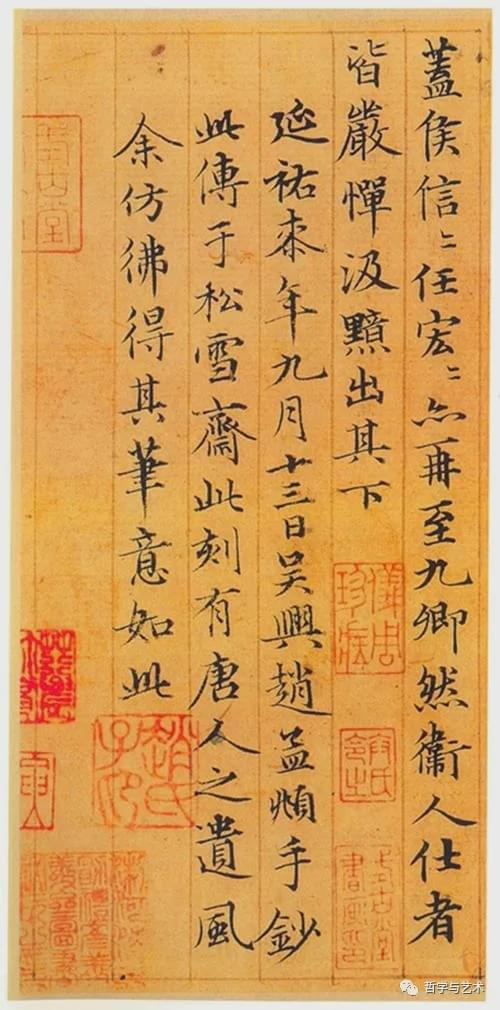 蓋侯信〻任宏〻亦再至九卿然衞人仕者
皆嚴憚汲黯出其下
延祐桼年九月十三日吳興趙孟頫手鈔
此傳于松雪齋此刻有唐人之遺風
余仿彿得其筆意如此
儀周珍藏
趙氏子昂
哲学与艺术